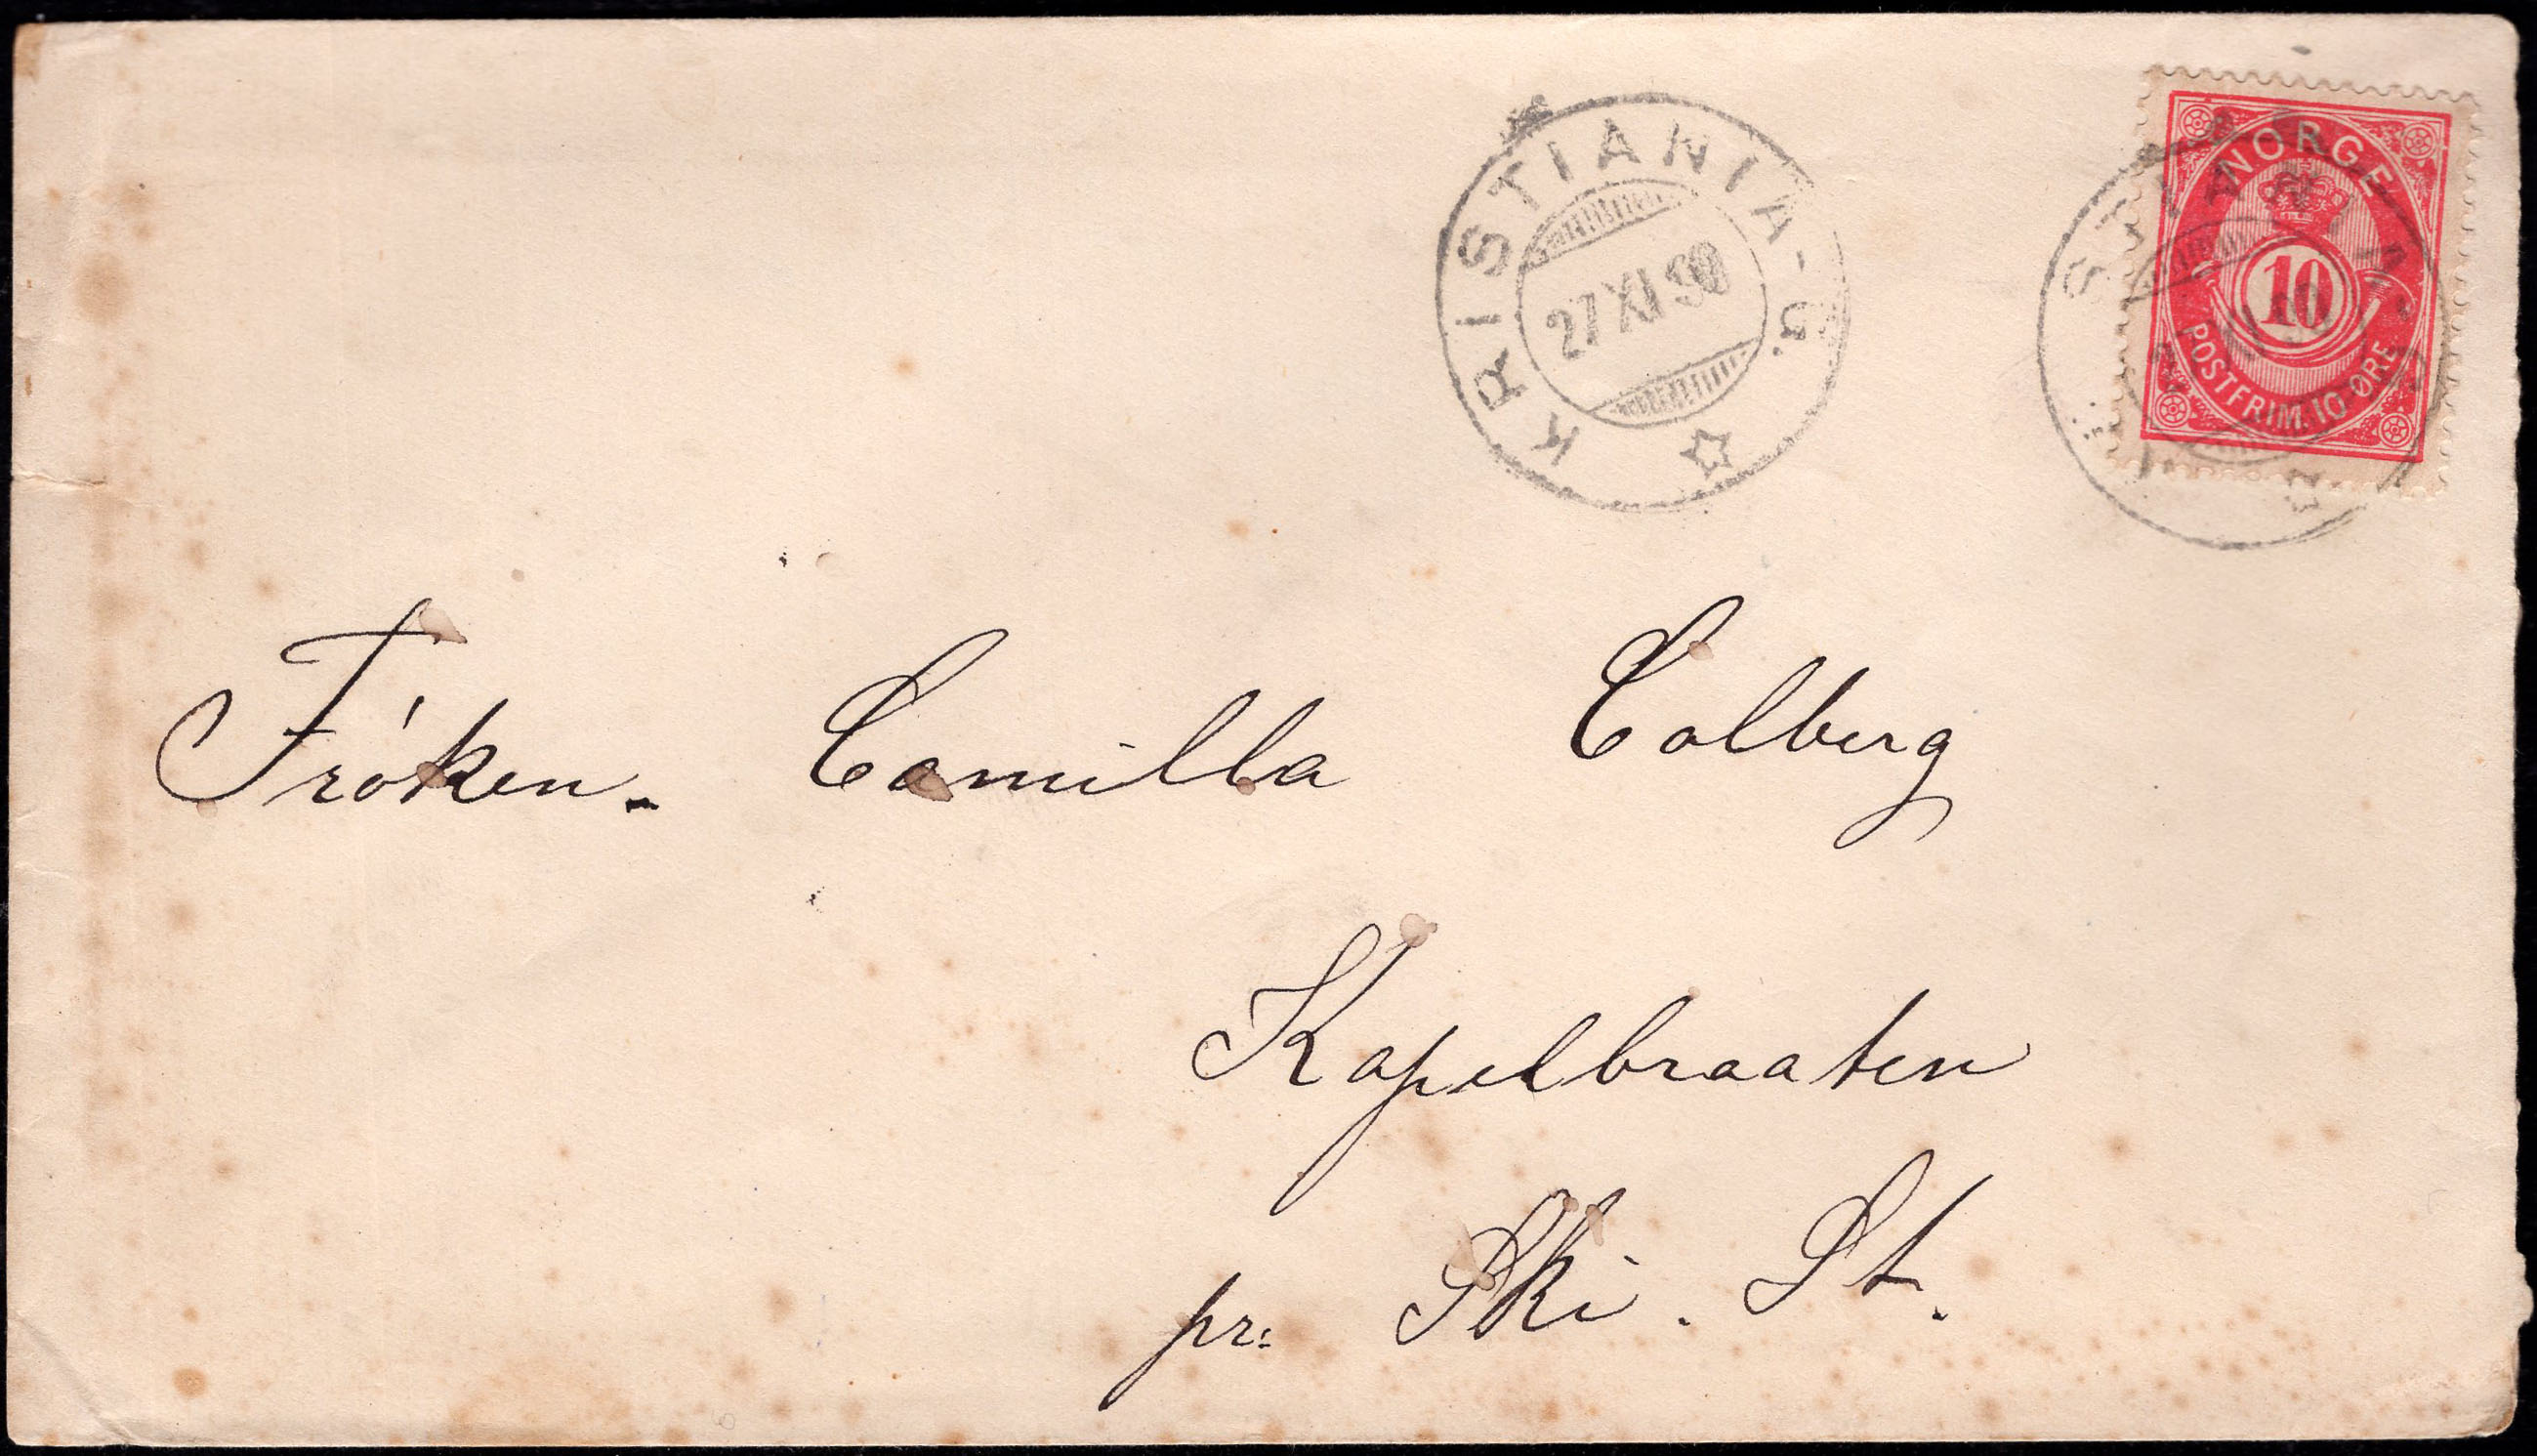 KRISTIANIA-G.
27 XI 90
NORGE
10
POSTFRIM. 10 ØRE
STIANIA-G.
XI 90
Fróken. Camilla Colberg
Kapelbraaten
pr: Ski. St.